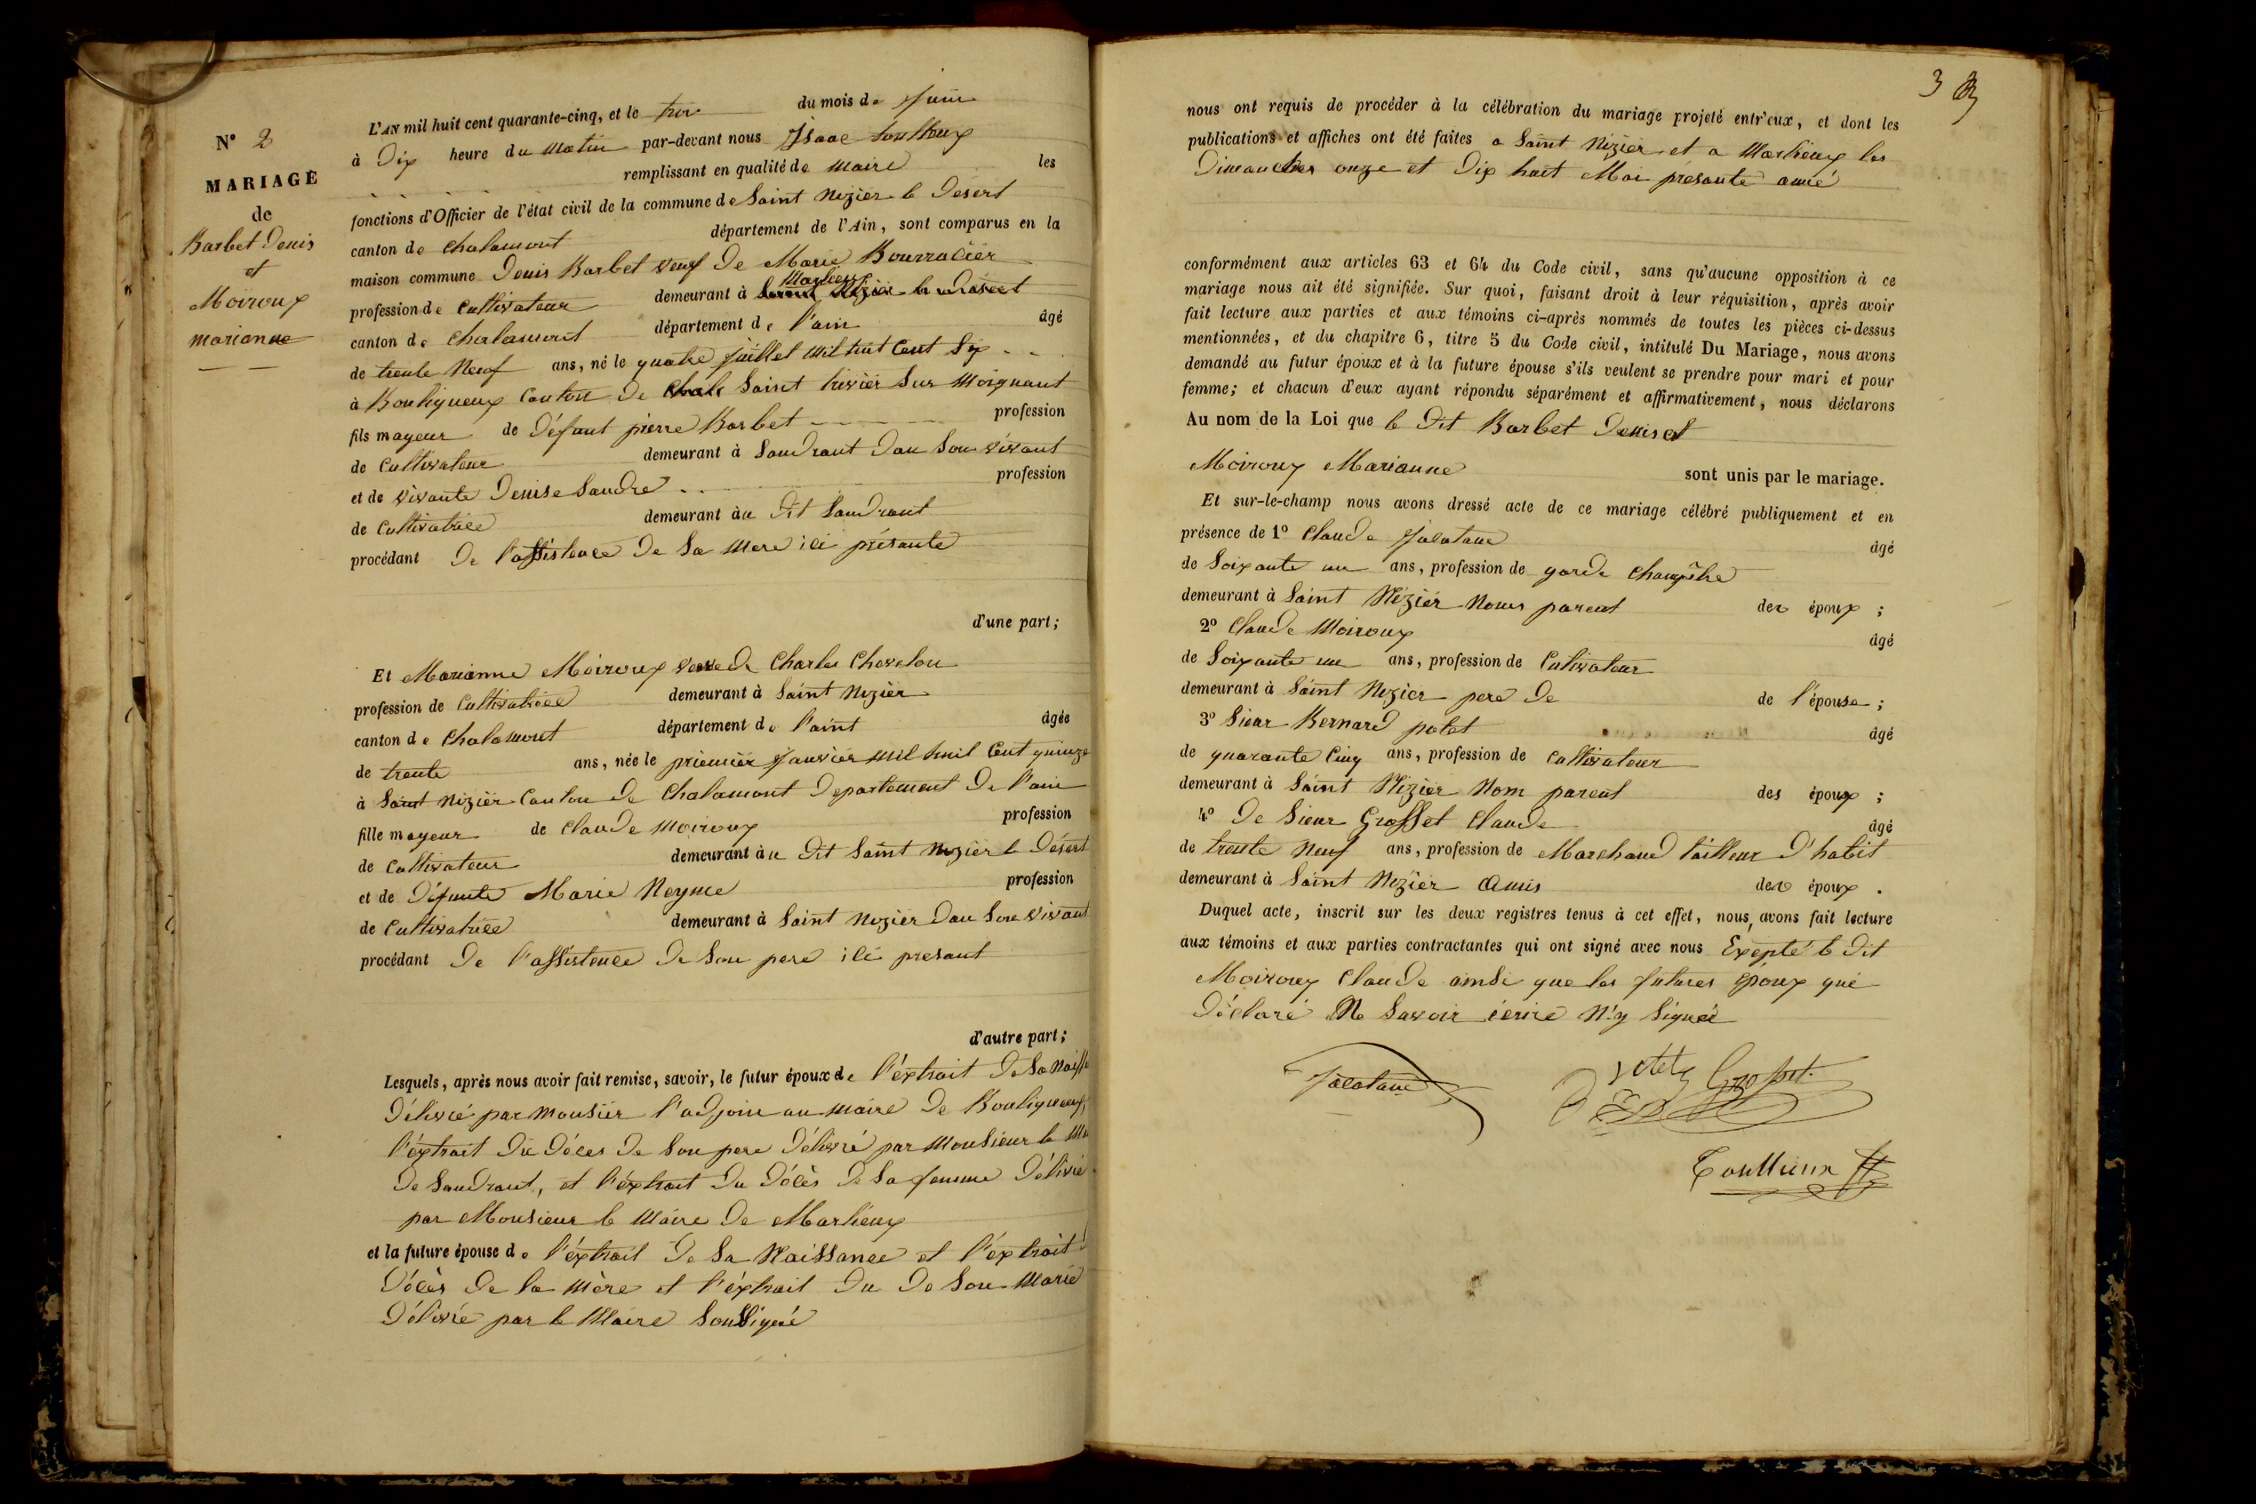 N° 2
MARIAGE
de
Barbet Denis
et
Moiroux
marianne
L'AN mil huit cent quarante-cinq, et le troi du mois de Juin
à Dix heure du Matin par-devant nous Isaac
remplissant en qualité de maire les
fonctions d'Officier de l'état civil de la commune de Saint Nizier le Desert
canton de Chalamont département de l'Ain, sont comparus en la
maison commune Denis Barbet veuf De Marie
Marlieux
profession de Cultivateur demeurant à Saint Nizier le Desert
canton de Chalamont département de l'ain âgé
de trente Neuf ans, né le quatre Juillet mil huit Cent Six
à Bouligneux Canton De Chala Saint trivier Sur Moignant
fils mayeur de Défunt pierre Barbet profession
de Cultivateur demeurant à Sandrant Dan Son vivant
et de vivante Denise Sandre profession
de Cultivatrice demeurant àu Dit Sandrant
procédant De l'assistence De Sa Mere ici présante
d'une part;
Et Marianne Moiroux veuve de Charles Chevelon
profession de Cultivatrice demeurant à Saint Nizier
canton de Chalamont département de l'aint âgée
de trente ans, née le priemier Janvier mil huit Cent quinze
à Saint Nizier Canton de Chalamont Departement De l'ain
fille mayeur de Claude Moiroux profession
de Cultivateur demeurant àu Dit Saint Nizier le Désert
et de Défunte Marie Neyme profession
de Cultivatrice demeurant à Saint Nizier Dan Son vivant
procédant De l'assistence De Son pere ici presant
d'autre part;
Lesquels, après nous avoir fait remise, savoir, le futur époux de l'éxtrait De Sa Naiss
Délivré par Monsier l'adjoin au maire De Bouligneux,
l'éxtrait Du Déces De Son pere Délivré par Monsieur le Ma
De Sandrant, et l'éxtrait Du Décès De Sa femme Délivré
par Monsieur le Maire De Marlieux
et la future épouse de l'éxtrait De Sa Naissance et l'éxtrait d
Décès De la Mère et l'éxtrait Du De Son Marie
Délivré par le Maire Soussigné
3
nous ont requis de procéder à la célébration du mariage projeté entr'eux, et dont les
publications et affiches ont été faites a Saint Nizier et a Marlieux les
Dimanches onze et Dix huit Mai présante anné
conformément aux articles 63 et 64 du Code civil, sans qu'aucune opposition à ce
mariage nous ait été signifiée. Sur quoi, faisant droit à leur réquisition, après avoir
fait lecture aux parties et aux témoins ci-après nommés de toutes les pièces ci-dessus
mentionnées, et du chapitre 6, titre 5 du Code civil, intitulé Du Mariage, nous avons
demandé au futur époux et à la future épouse s'ils veulent se prendre pour mari et pour
femme; et chacun d'eux ayant répondu séparément et affirmativement, nous déclarons
Au nom de la Loi que le Dit Barbet Denis et
Moiroux Marianne sont unis par le mariage.
Et sur-le-champ nous avons dressé acte de ce mariage célébré publiquement et en
présence de 1° Claude Jacotane âgé
de Soixante un ans, profession de garde Champêtre
demeurant à Saint Nizier Nom parent des époux ;
2° Claude Moiroux âgé
de Soixante un ans, profession de Cultivateur
demeurant à Saint Nizier pere De de l'épouse ;
3° Sieur Bernard potet âgé
de quarante Cinq ans, profession de Cultivateur
demeurant à Saint Nizier Nom parent des époux ;
4° De Sieur Grosset Claude âgé
de trente Neuf ans, profession de Marchand tailleur D'habit
demeurant à Saint Nizier Amis des époux .
Duquel acte, inscrit sur les deux registres tenus à cet effet, nous avons fait lecture
aux témoins et aux parties contractantes qui ont signé avec nous Exépté le Dit
Moiroux Claude ainsi que les futures époux qui
Déclaré Ne Savoir iérire N'y Signé
Jacotane
Grosset